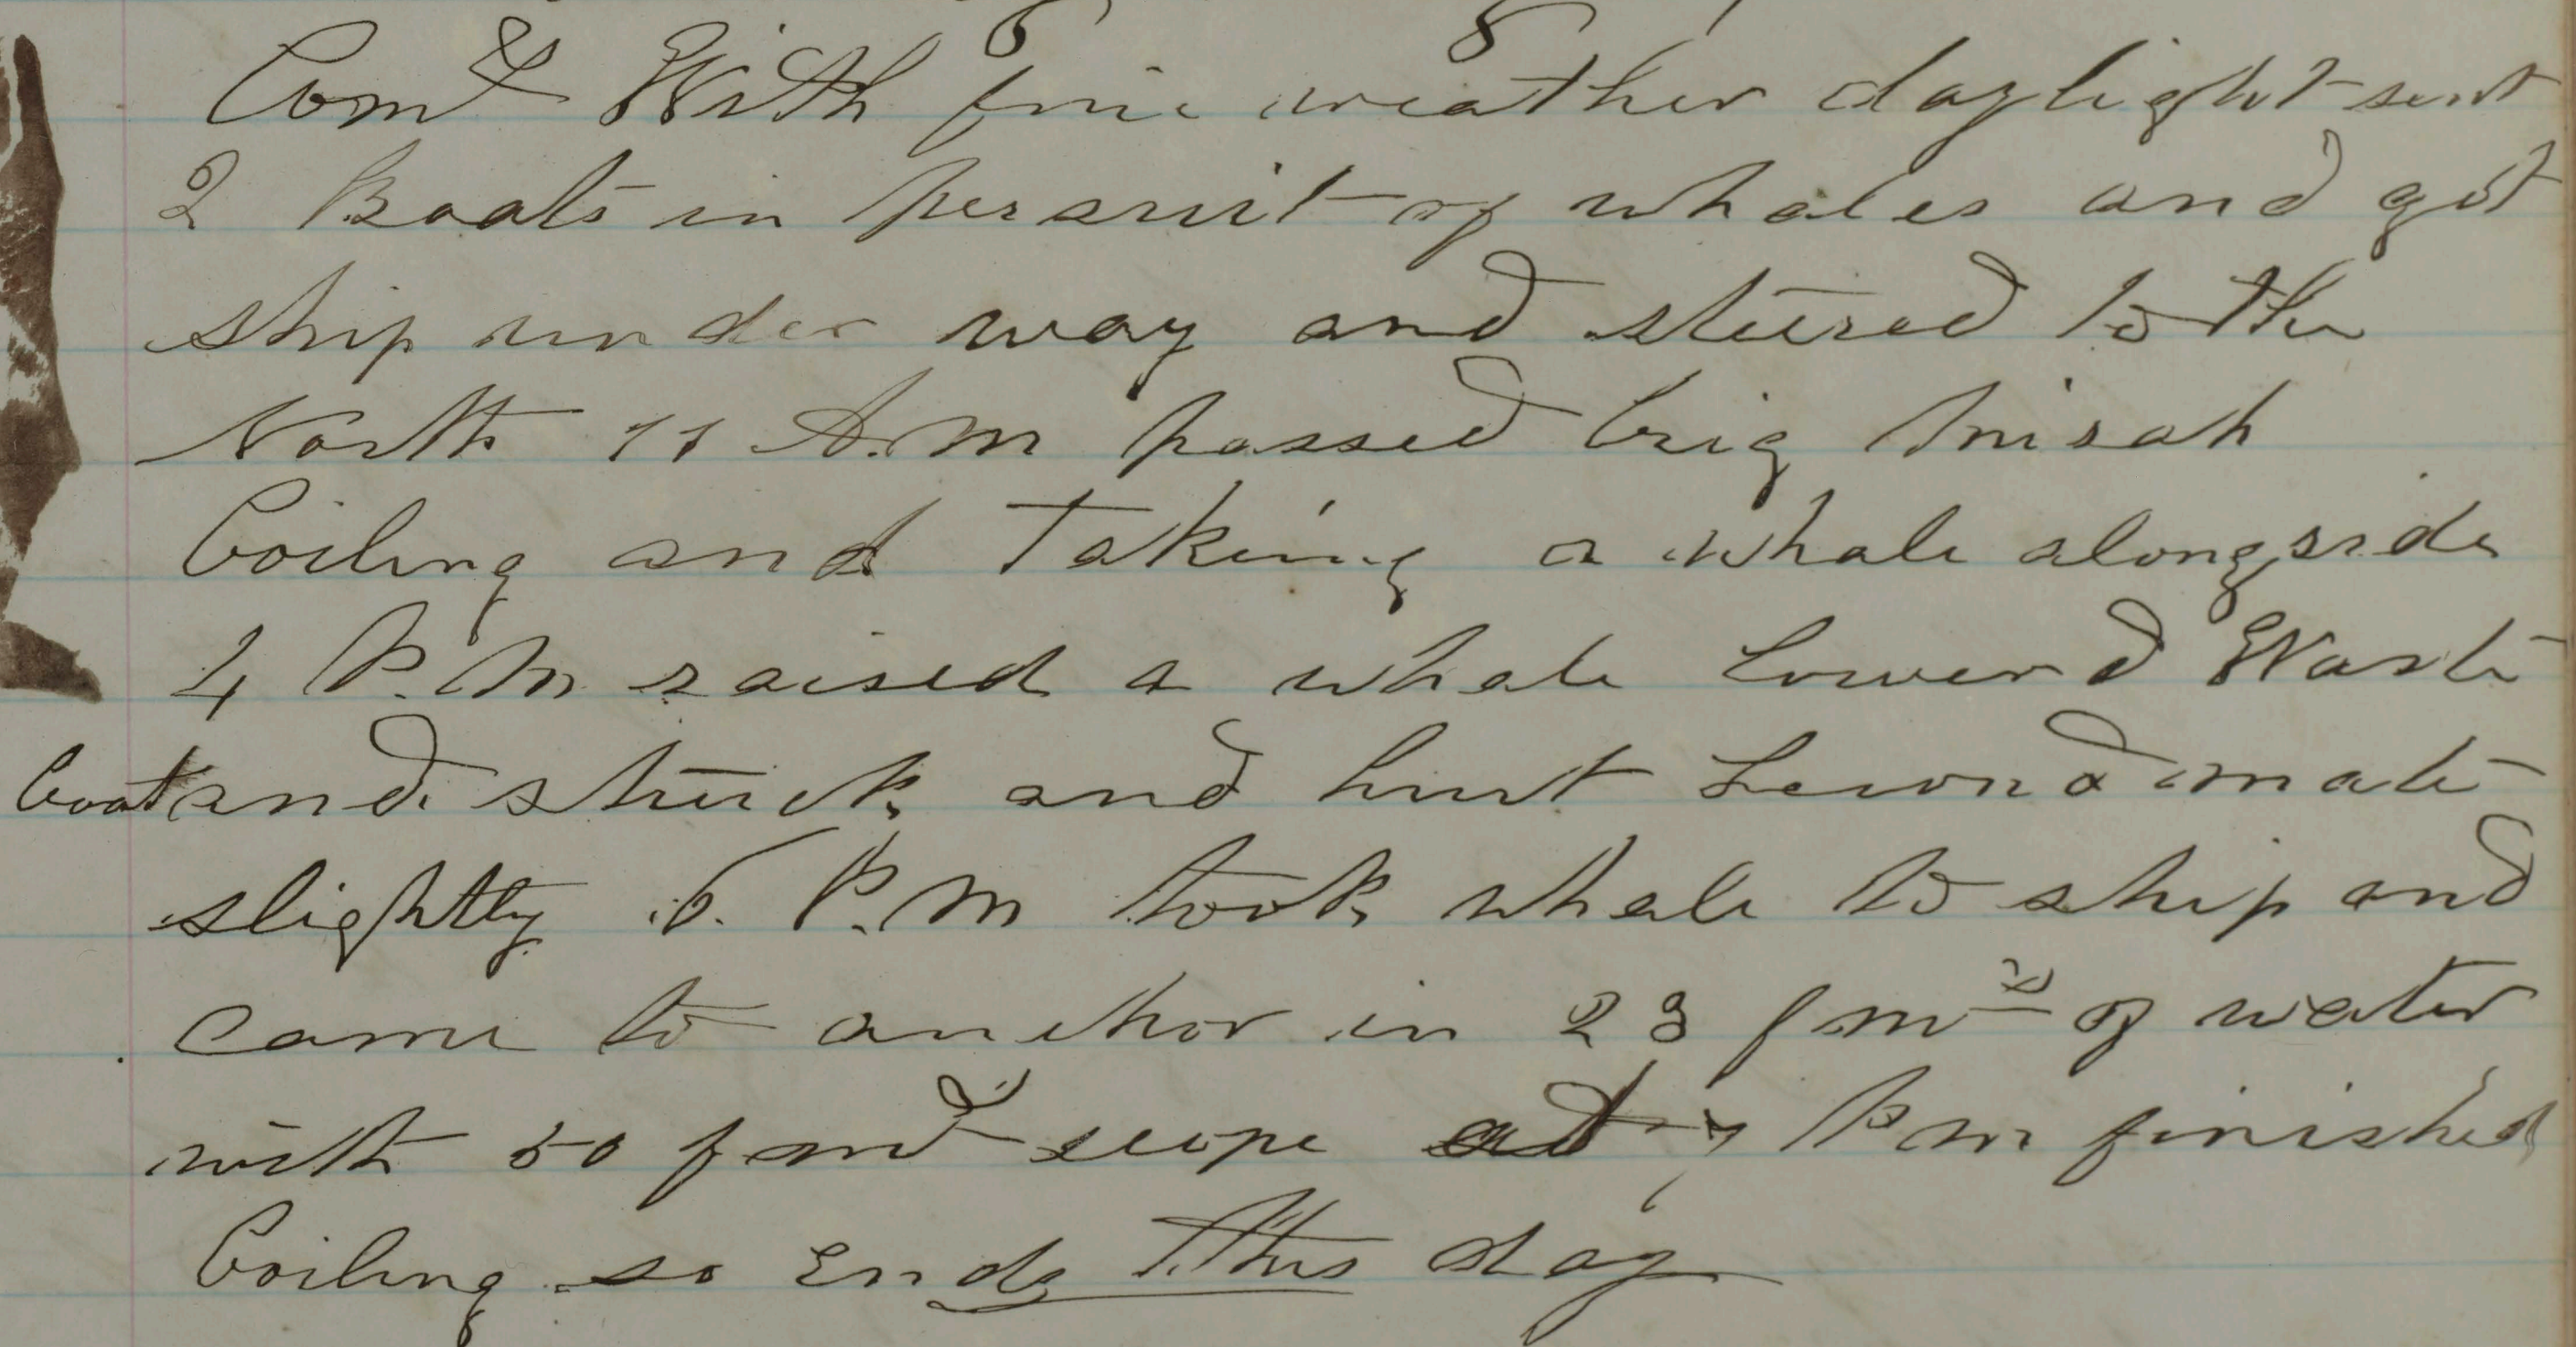 Com^d With fine weather daylight sent
2 Boats in persuit of whales and got
ship under way and steered to the
North 11 A.M passed brig
boiling and taking a whale alongside
4 P.M raised a whale Lowerd Waste
boat and struck and hurt Second mate
slightly 5. P.M took whale to ship and
came to anchor in 23 fms of water
with 50 fm scope at 7 P m finished
boiling so Ends this day